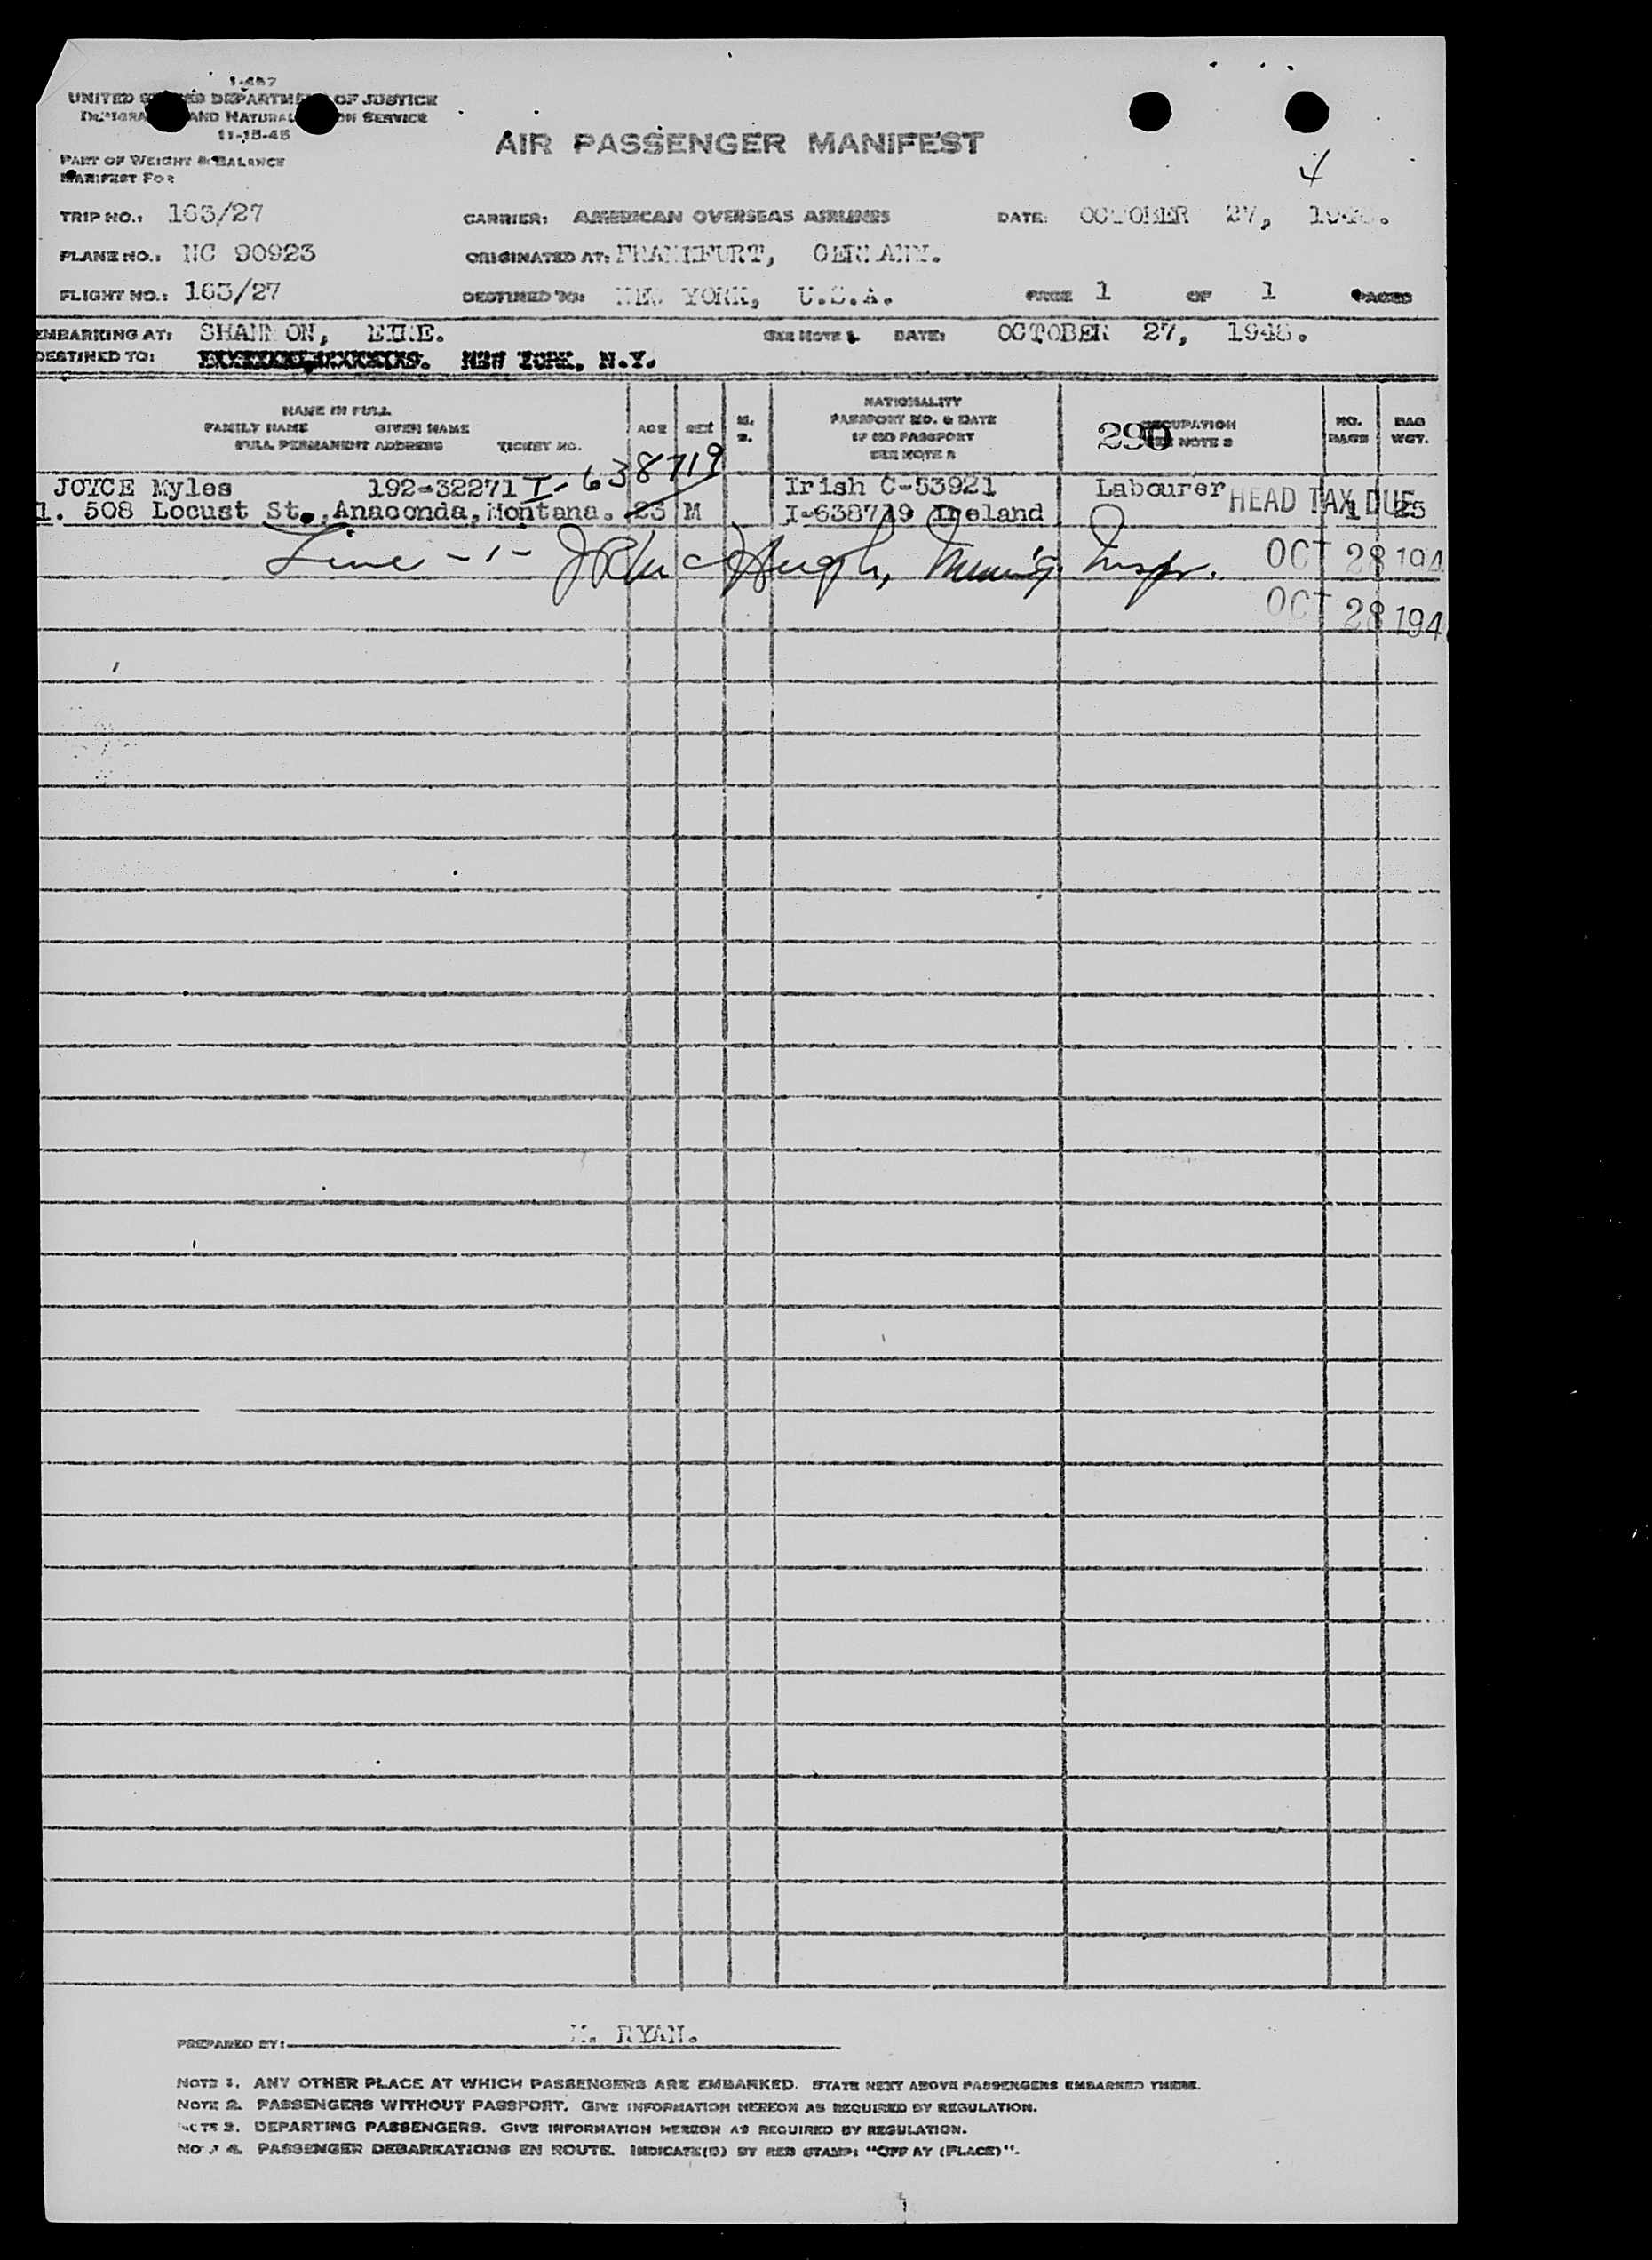 1-457
UNITED STATES DEPARTMENT OF JUSTICE
IMMIGRATION AND NATURALIZATION SERVICE
11-15-45
AIR PASSENGER MANIFEST
PART OF WEIGHT & BALANCE
MANIFEST FOR
4
TRIP NO.: 163/27 CARRIER: AMERICAN OVERSEAS AIRLINES DATE: OCTOBER 27, 1948.
PLANE NO.: NC 90923 ORIGINATED AT: FRANKFURT, GERMANY.
FLIGHT NO.: 163/27 DESTINED TO: NEW YORK, U.S.A. PAGE 1 OF 1 PAGES
EMBARKING AT: SHANNON, EIRE. SEE NOTE 1. DATE: OCTOBER 27, 1948.
DESTINED TO: NEW YORK, N.Y.
NAME IN FULL
FAMILY NAME GIVEN NAME
FULL PERMANENT ADDRESS TICKET NO.
AGE SEX M. S.
NATIONALITY
PASSPORT NO. & DATE
IF NO PASSPORT
SEE NOTE 2
290 OCCUPATION
SEE NOTE 3
NO. BAGS
BAG WGT.
I-638719
JOYCE Myles 192-32271 Irish C-53921 Labourer HEAD TAX DUE
1. 508 Locust St., Anaconda, Montana. 23 M I-638719 Ireland 1 25
Line -1- Immig. Inspr. OCT 28 194
OCT 28 194
PREPARED BY: M. RYAN.
NOTE 1. ANY OTHER PLACE AT WHICH PASSENGERS ARE EMBARKED. STATE NEXT ABOVE PASSENGERS EMBARKED THERE.
NOTE 2. PASSENGERS WITHOUT PASSPORT. GIVE INFORMATION HEREON AS REQUIRED BY REGULATION.
NOTE 3. DEPARTING PASSENGERS. GIVE INFORMATION HEREON AS REQUIRED BY REGULATION.
NOTE 4. PASSENGER DEBARKATIONS EN ROUTE. INDICATE(D) BY RED STAMP: "OFF AT (PLACE)".